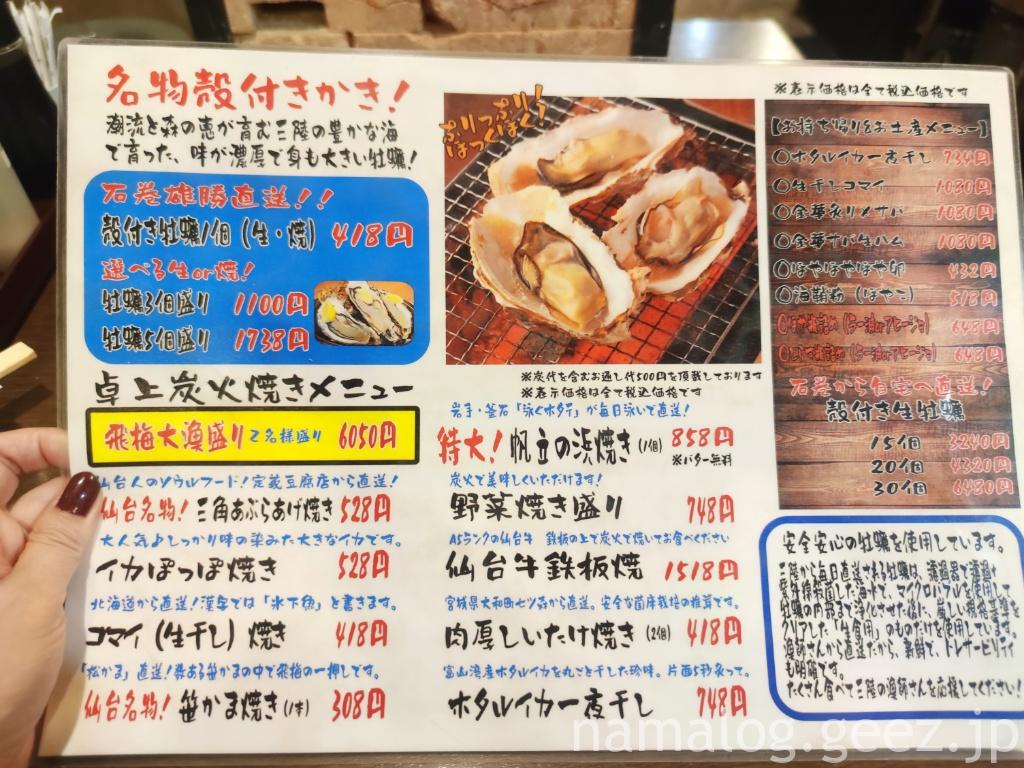 名物殻付きかき!
潮流と森の恵が育む三陸の豊かな海
で育った、味が濃厚で身も大きい牡蠣!
石巻雄勝直送!!
殻付き牡蠣1個(生・焼) 418円
選べる生or焼!
牡蠣3個盛り 1100円
牡蠣5個盛り 1738円
ぷりっぷり!
ほっくほく!
卓上炭火焼きメニュー
※炭代を含むお通し代500円を頂戴しております
※表示価格は全て税込価格です
飛梅大漁盛り 2名様盛り 6050円
仙台人のソウルフード!定義豆腐店から直送!
仙台名物!三角あぶらあげ焼き 528円
大人気♪しっかり味の染みた大きなイカです。
イカぽっぽ焼き 528円
北海道から直送!漢字では「氷下魚」と書きます。
コマイ(生干し)焼き 418円
「松かま」直送!数ある笹かまの中で飛梅の一押しです。
仙台名物!笹かま焼き(1本) 308円
岩手・釜石「泳ぐホタテ」が毎日泳いで直送!
特大!帆立の浜焼き(1個) 858円
※バター無料
炭火で美味しくいただけます!
野菜焼き盛り 748円
A5ランクの仙台牛 鉄板の上で炭火で焼いてお食べください
仙台牛鉄板焼 1518円
宮城県大和町七ツ森から直送。安全な菌床栽培の椎茸です。
肉厚しいたけ焼き(2個) 418円
富山湾産ホタルイカを丸ごと干した珍味。片面5秒炙って。
ホタルイカ一夜干し 748円
※表示価格は全て税込価格です
【お持ち帰り&お土産メニュー】
○ホタルイカ一夜干し 734円
○生干しコマイ 1080円
○金華炙りメサバ 1080円
○金華サバ生ハム 1080円
○ほやほやほや卵 432円
○海鞘粉(ほやこ) 518円
(ラー油orアヒージョ) 648円
(ラー油orアヒージョ) 648円
石巻から自宅へ直送!
殻付き生牡蠣
15個 3240円
20個 4320円
30個 6480円
安全安心の牡蠣を使用しています。
三陸から毎日直送される牡蠣は、濾過器で濾過し
紫外線殺菌した海水で、マイクロバブルを使用して
牡蠣の内部まで浄化させた後に、厳しい規格基準を
クリアした「生食用」のものだけを使用しています。
漁師さんから直送だから、新鮮で、トレサービリティ
も明確です。
たくさん食べて三陸の漁師さんを応援してください!
namalog.geez.jp